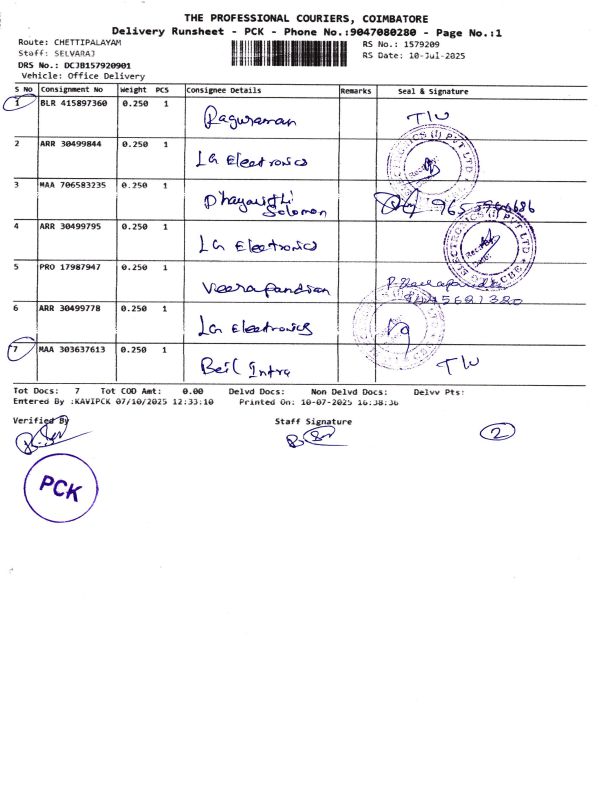 THE PROFESSIONAL COURIERS, COIMBATORE
Delivery Runsheet - PCK - Phone No.:9047080280 - Page No.:1
Route: CHETTIPALAYAM RS No.: 1579209
Staff: SELVARAJ RS Date: 10-Jul-2025
DRS No.: DCJB157920901
Vehicle: Office Delivery
S No Consignment No Weight PCS Consignee Details Remarks Seal & Signature
1 BLR 415897360 0.250 1 Raguraman
2 ARR 30499844 0.250 1 LG Electronics
3 MAA 706583235 0.250 1 Dhayanithi Solomon
4 ARR 30499795 0.250 1 LG Electronics
5 PRO 17987947 0.250 1 Veerapandian
6 ARR 30499778 0.250 1 LG Electronics
7 MAA 303637613 0.250 1 Beil Infra
Tot Docs: 7 Tot COD Amt: 0.00 Delvd Docs: Non Delvd Docs: Delvv Pts:
Entered By :KAVIPCK 07/10/2025 12:33:10 Printed On: 10-07-2025 16:38:36
Verified By Staff Signature
2
PCK